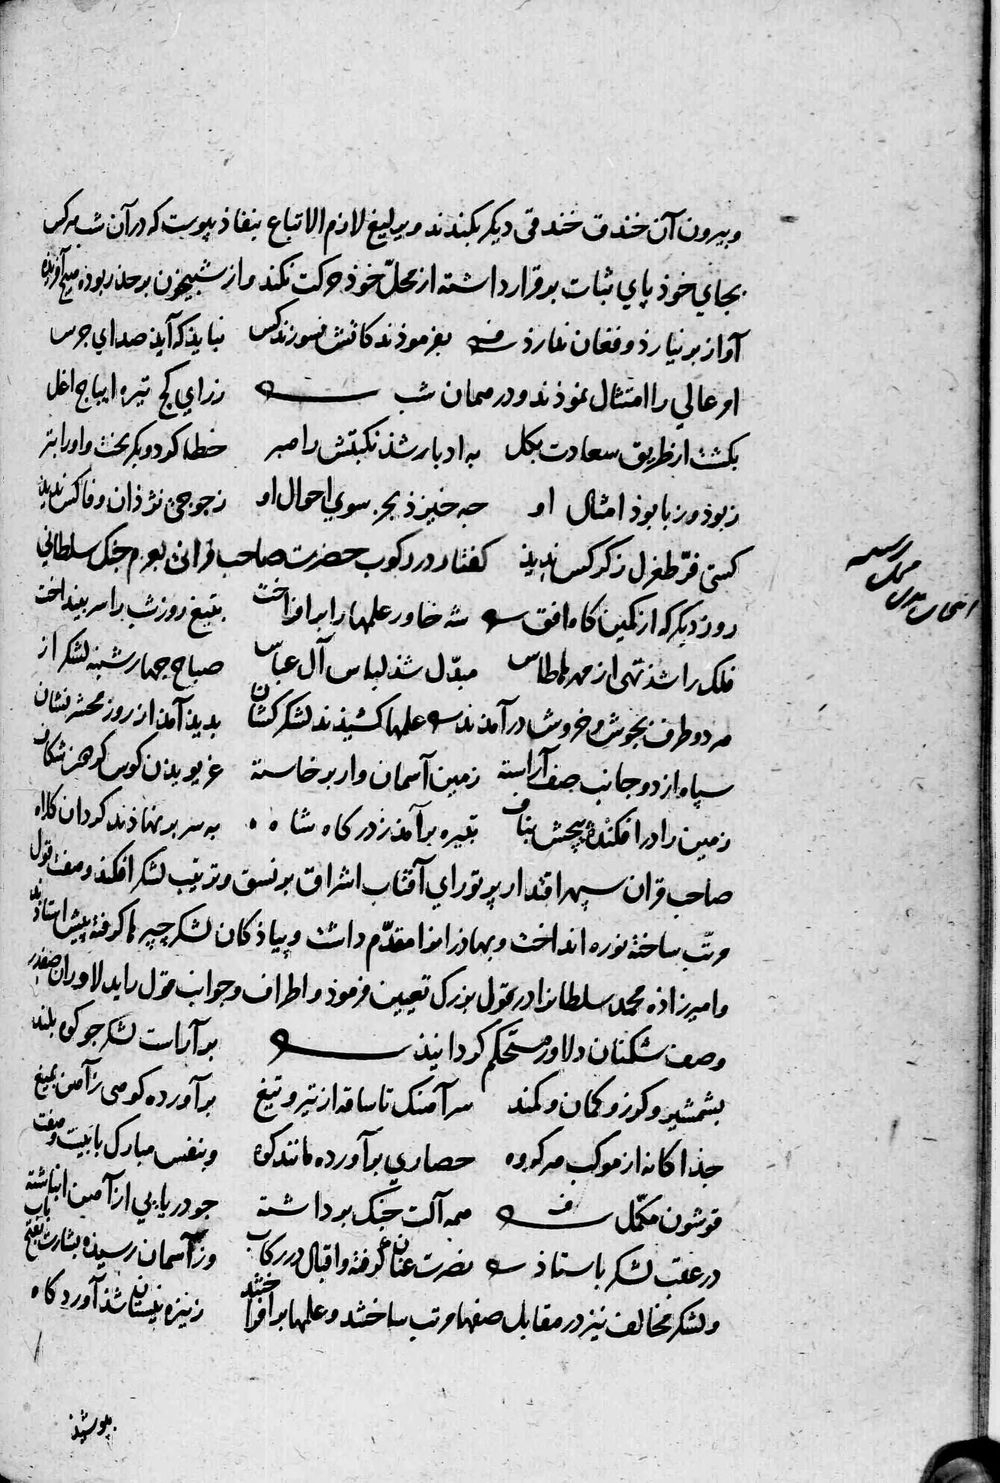 و بیرون آن خندق خندقی دیکر بکندند و یرلیغ لازم الاتباع بنفاذ پیوست که در آن شب هرکس
بجای خوذ پای ثبات برقرار داشته از محلّ خوذ حرکت نکند و از شبیخون بر حذر بوده هیچ آفریده
آواز بر نیارذ و فغان ندارذ بفرموذند کاتش نسوزند کس نباید که آید صدای جرس
امر عالی را امتثال نموذند و در همان شب ز رای کج تیره ایباج اغل
بکشت از طریق سعادت بکل به ادبار شذ نکبتش راهبر خطا کرد و بکریخت و اورا بتر
ز بوذ و ز نابوذ امثال او چه خیزذ بجز سوی احوال او ز جوجی نژذان وفا کس ندید
کسی فرّ طغرل ز کرکس ندید کفتار در رکوب حضرت صاحب قرانی بعزم جنک سلطانی
روز دیکر که از کمین کاه افق شه خاور علمها را بر افراخت بتیغ روز شب را سر بینداخت
فلک را شذ تهی از مهره طاس مبدّل شذ لباس آل عباس صباح چهارشنبه لشکر از
هر دو طرف بجوش و خروش در آمدند علمها کشیذند لشکر کشان بدیذ آمذ از روز محشر نشان
سپاه از دو جانب صف آراسته زمین آسمان وار برخاسته غریویدن کوس کردهن شکاف
زمین را در افکنده پیچش بناف تبیره بر آمذ ز درکاه شاه به سر بر نهاذند کردان کلاه
صاحب قران سپهر اقتدار پرتو رای آفتاب اشراق بر نسق و ترتیب لشکر افکند و هفت قول
مرتّب ساخته توره انداخت و بهاذرانرا مقدّم داشت و پیاذکان لشکر چپرها کرفته پیش استاذند
و امیرزاذه محمد سلطانرا در قول بزرک تعیین فرموذ و اطراف و جوانب قول را بدلاوران صفدر
و صف شکنان دلاور مستحکم کردانیذ بر آراست لشکر چو کوه بلند
بشمشیر و کوز و کمان و کمند سر آهنک تا ساقه از تیر و تیغ بر آورده کوهی ز آهن بمیغ
جذاکانه از موکب هر کروه حصاری بر آورده مانند کوه و بنفس مبارک با بیست و هفت
قوشون مکمّل همه آلت جنک برداشته چو دریایی از آهن انباشته
در عقب لشکر باستاذ نصرت عنان کرفته و اقبال در رکاب وز آسمان رسیذه بشارت بفتح باب
و لشکر مخالف نیز در مقابل صفها مرتب ساختند و علمها بر افراختند ز نیزه نیستان شذ آوردکاه
بپوشیذ